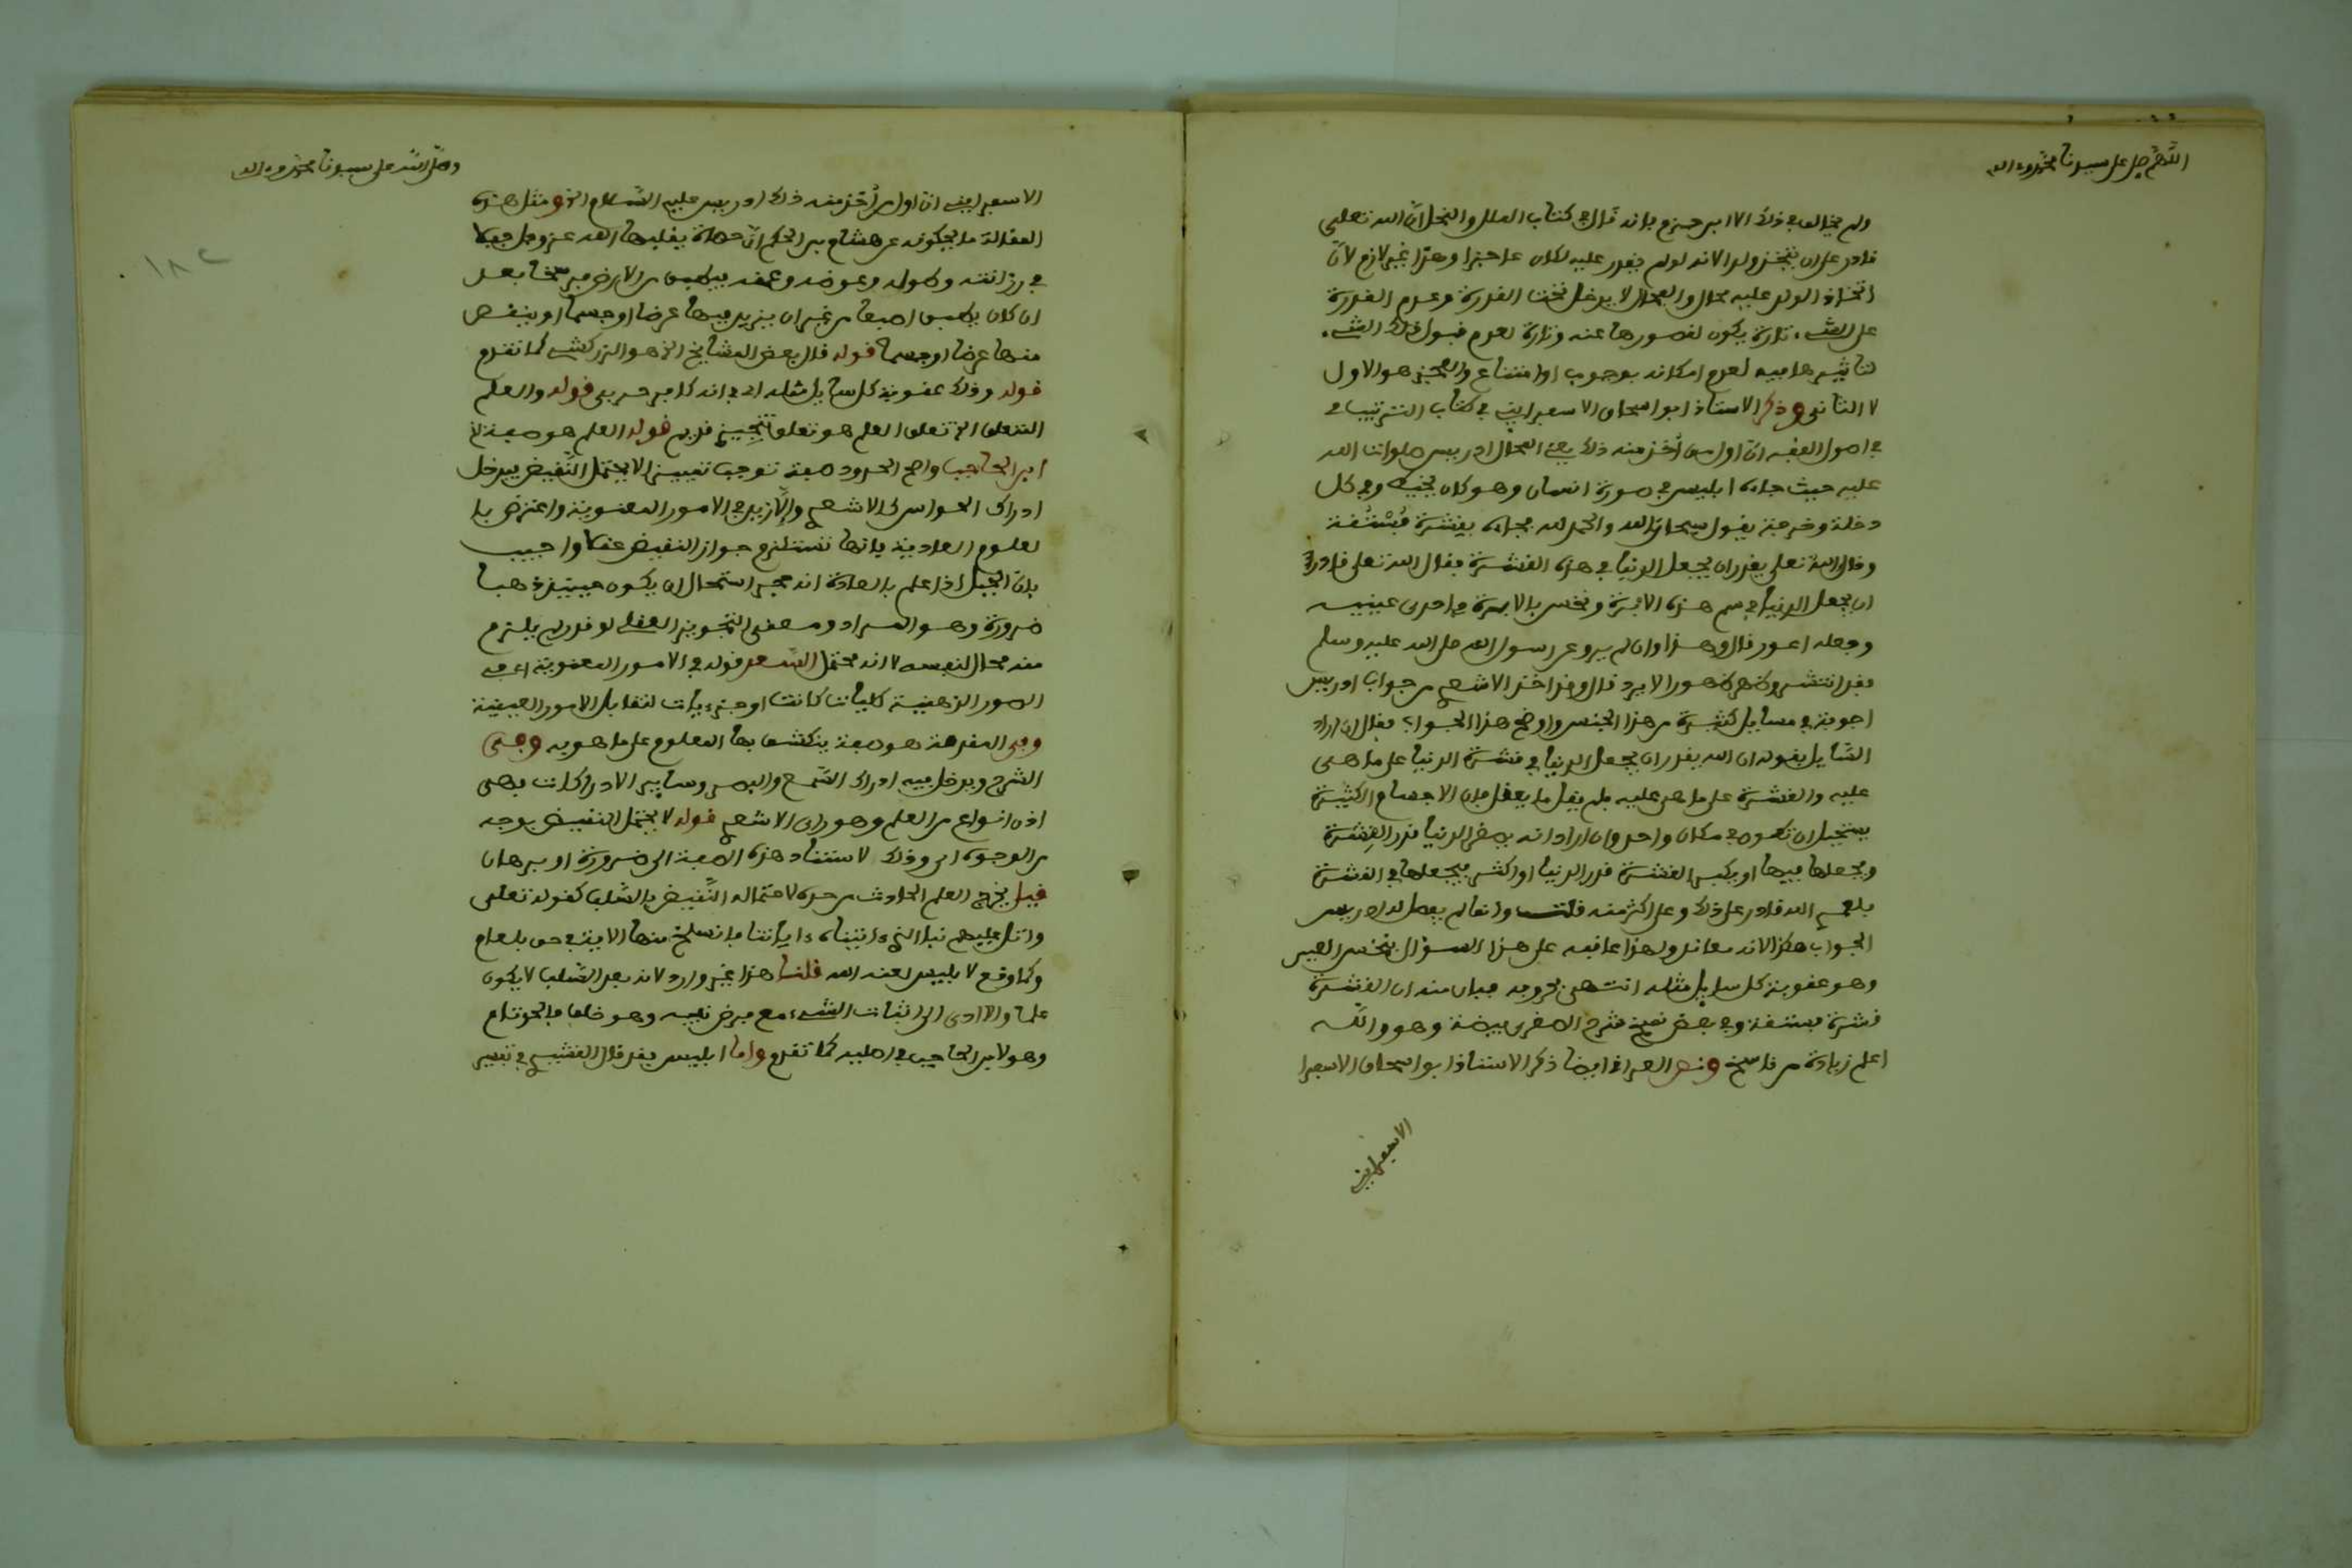 اللهم صل على سيدنا محمد وءاله
ولم يخالف في ذلك الا ابن حزم فانه قال في كتاب الملل والنحل ان الله تعلى
قادر على ان يتخذ ولدا لانه لو لم يقدر عليه لكان عاجزا وهذا غير لازم لان
اتخاذ الولد عليه محال والمحال لا يدخل تحت القدرة وعدم القدرة
على الشيء تارة يكون لقصورها عنه وتارة لعدم قبول ذلك الشيء
لتاثيرها فيه لعدم امكانه بوجوب او امتناع والعجز هو الاول
لا الثانى وذكر الاستاذ ابو اسحاق الاسفرايني في كتاب الترتيب في
في اصول الفقه ان اول من أخذ منه ذلك يعني المحال ادريس صلوات الله
عليه حيث جاءه ابليس في صورة انسان وهو كان يخيط وفي كل
دخلة وخرجة يقول سبحان الله والحمد لله فجاءه بقشرة فستقة
وقال الله تعلى يقدر ان يجعل الدنيا في هذه القشرة فقال الله تعلى قادر
ان يجعل الدنيا في سم هذه الابرة ونخس بالابرة في احدى عينيه
وجعله اعور قال وهذا وان لم يرو عن رسول الله صلى الله عليه وسلم
فقد انتشر وظهر ظهورا لا يرد قال وقد اخذ الاشعري من جواب ادريس
اجوبة في مسايل كثيرة من هذا الجنس واوضح هذا الجواب فقال ان اراد
السايل بقوله ان الله يقدر ان يجعل الدنيا في قشرة الدنيا على ما هى
عليه والقشرة على ما هي عليه فلم يقل ما يعقل فان الاجسام الكثيرة
يستحيل ان تكون في مكان واحد وان اراد انه يصغر الدنيا قدر القشرة
ويجعلها فيها او يكبر القشرة قدر الدنيا او اكثر فيجعلها في القشرة
فلعمري الله قادر على ذلك وعلى اكثر منه قلت وانما لم يفصل له ادريس
الجواب هكذا لانه معاند ولهذا عاقبه على هذا السؤال بنخس العين
وهو عقوبة كل سايل مثله انتهى بحروفه فبان منه ان القشرة
قشرة فستقة وفي بعض نسخ شرح الصغرى بيضة وهو والله
اعلم زيادة من ناسخ ونص العراقي ايضا ذكر الاستاذ ابو اسحاق الاسفرا
الاسفرايني
وصلى الله على سيدنا محمد وءاله
١٨٢
الاسفرايني ان اول من أخذ منه ذلك ادريس عليه السلام الخ ومثل هذه
المقالة ما يحكونه عن هشام بن الحكم ان حصاة يقلبها الله عز وجل جبلا
في رزانته وطوله وعرضه وعمقه فيطبق من الارض فرسخا بعد
ان كان يطبق اصبعا من غير ان يزيد فيها عرضا او جسما او ينقص
منها عرضا او جسما قوله قال بعض المشايخ الخ هو الزركشي كما تقدم
قوله وذلك عقوبة كل سايل مثله اي في انه كافر حربي قوله والعلم
المتعلق الخ تعلق العلم هو تعلق تنجيزي قديم قوله العلم هو صفة لخ
ابن الحاجب واصح الحدود صفة توجب تمييزا لا يحتمل النقيض فيدخل
ادراك الحواس كالاشعري والا زيد في الامور المعنوية واعترض با
لعلوم العادية فانها تستلزم جواز النقيض عقلا واجيب
بان الجبل اذا علم بالعادة انه حجر استحال ان يكون حينئذ ذهبا
ضرورة وهو المراد ومعنى التجويز العقلي لو قدر لم يلزم
منه محال لنفسه لا انه محتمل السعد قوله في الامور المعنوية اي في
الصور الذهنية كليات كانت او جزءيات لتقابل الامور العينية
وفي المقدمة هو صفة ينكشف بها المعلوم على ما هو به وفي
الشرح ويدخل فيه ادراك السمع والبصر وساير الادراكات فهى
اذن انواع من العلم وهو راي الاشعري قوله لا يحتمل النقيض بوجه
من الوجوه اي وذلك لاستناد هذه الصفة الى ضرورة او برهان
قيل يخرج العلم الحادث من حده لاحتماله النقيض بالسلب كقوله تعلى
واتل عليهم نبا الذي ءاتيناه ءاياتنا فانسلخ منها الاية في حق بلعام
وكما وقع لابليس لعنه الله قلنا هذا غير وارد لانه بعد السلب لا يكون
علما والا ادى الى اثبات الشيء مع فرض نفيه وهو خلف فالحد تام
وهو لابن الحاجب في اصليه كما تقدم واما ابليس فقد قال القشيري في تفسير